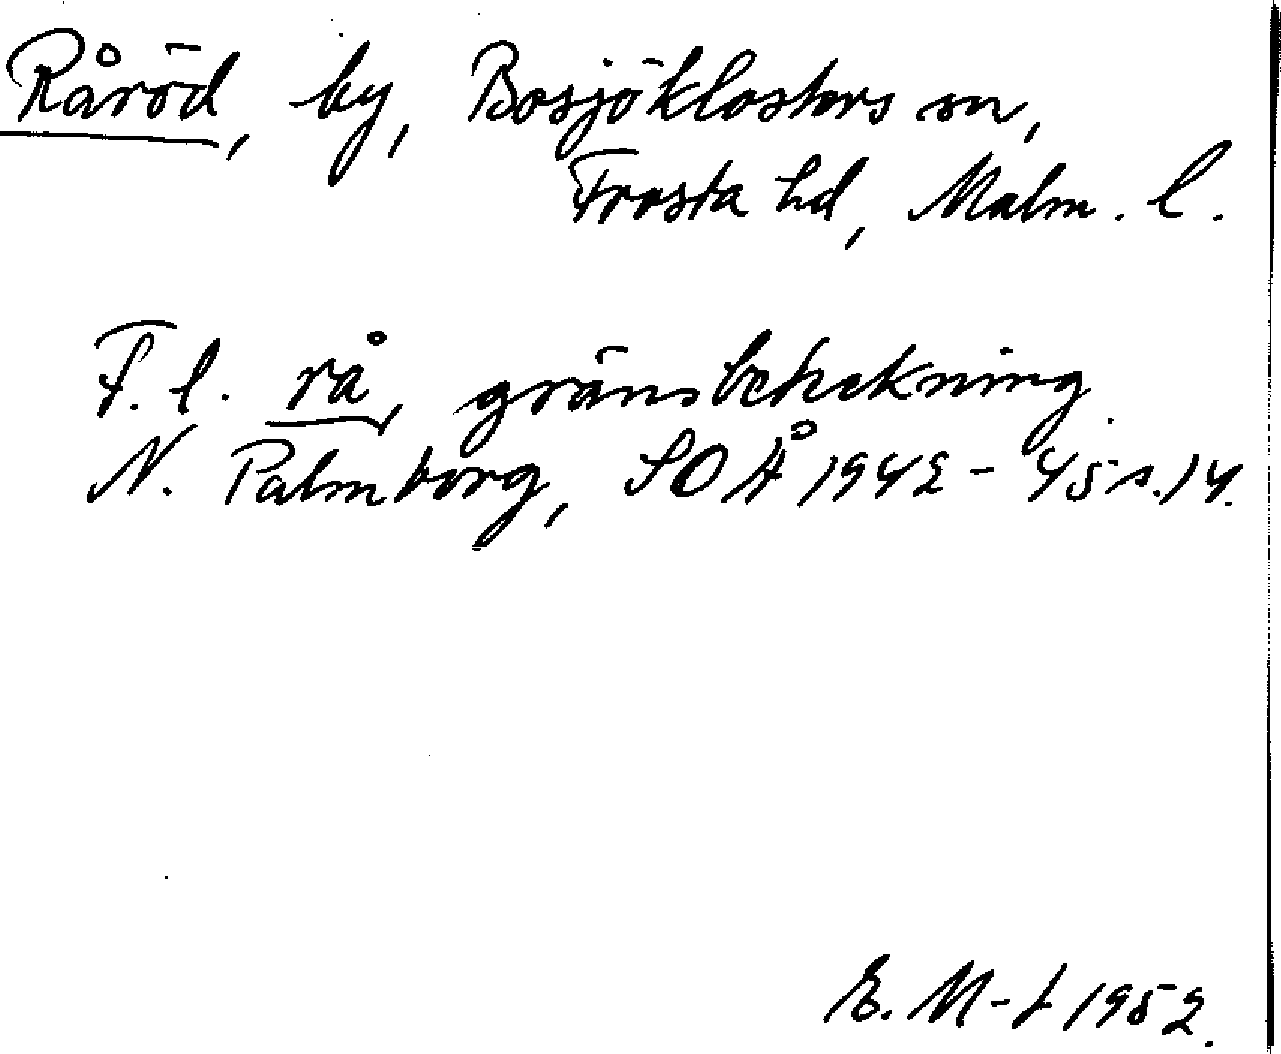 Råröd, by, Bosjöklosters sn,
Frosta hd, Malm. l.
F. l. rå, gränsbeteckning
N. Palmborg, SOÅ 1942-45 s. 14.
E. M-t 1952.